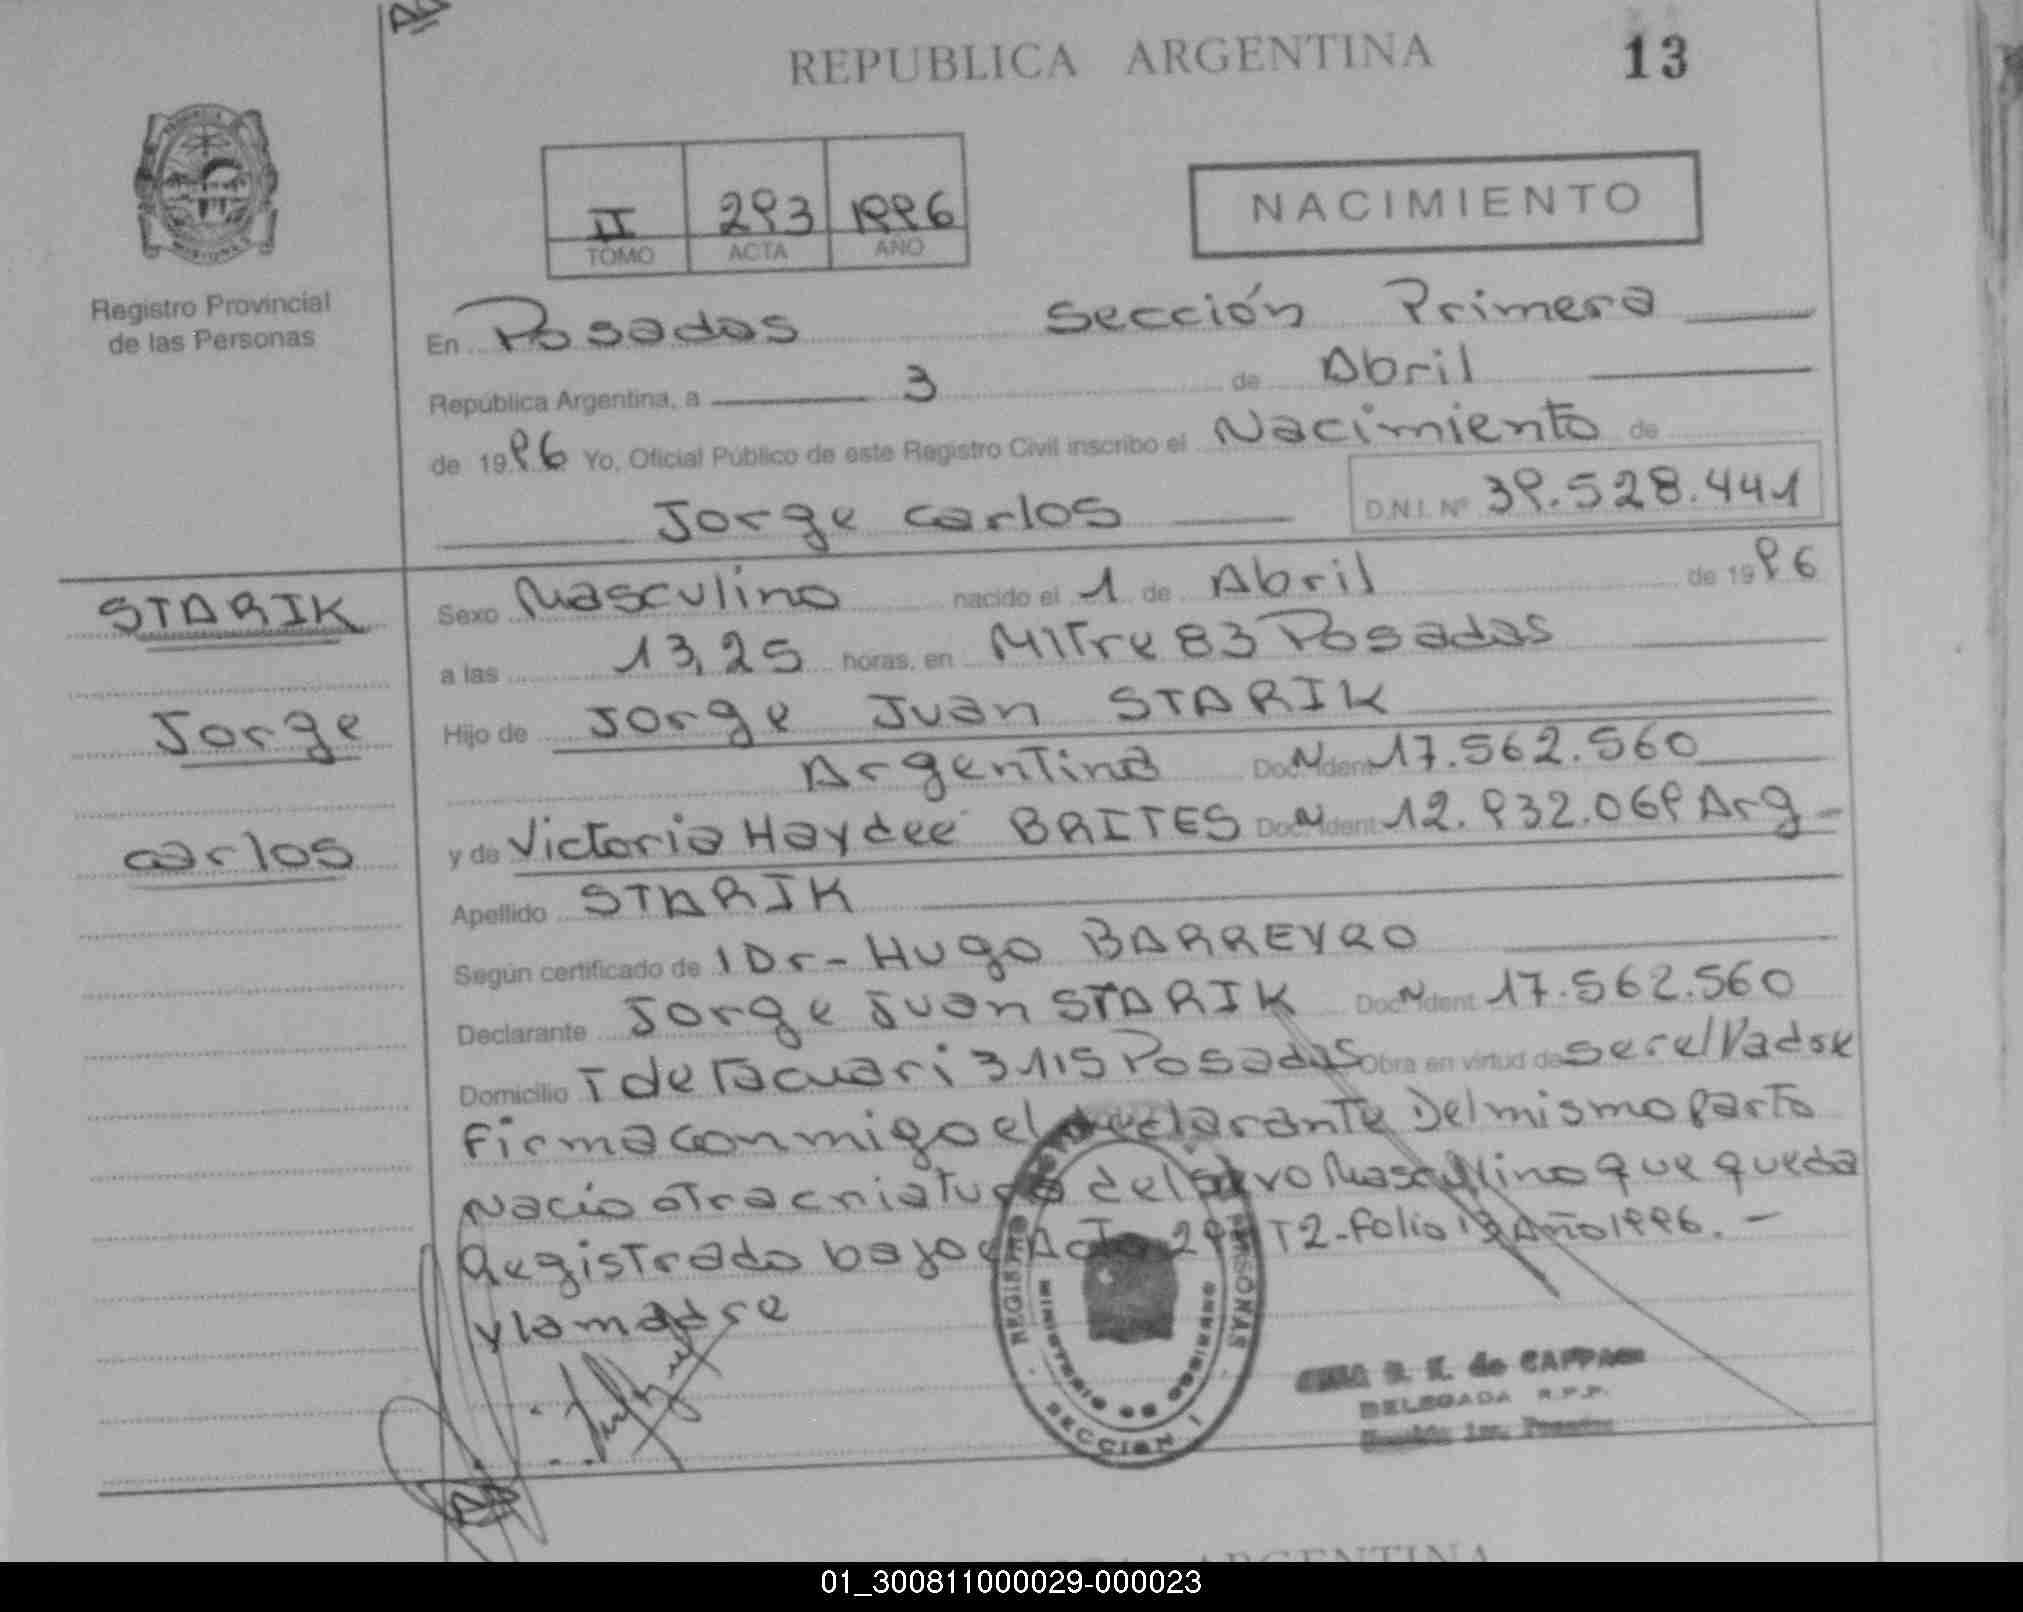 REPUBLICA ARGENTINA 13
II 293 1996
TOMO ACTA AÑO
NACIMIENTO
Registro Provincial
de las Personas
En Posadas Sección Primera
República Argentina, a 3 de Abril
de 1996 Yo, Oficial Público de este Registro Civil inscribo el Nacimiento de
Jorge Carlos D.N.I. Nº 39.528.441
STARIK
Jorge
Carlos
Sexo Masculino nacido el 1 de Abril de 1996
a las 13,25 horas, en Mitre 83 Posadas
Hijo de Jorge Juan STARIK
Argentina Doc. Ident. 17.562.560
y de Victoria Haydee BRITES Doc. Ident. 12.932.069 Arg
Apellido STARIK
Según certificado de 1 Dr- Hugo BARREYRO
Declarante Jorge Juan STARIK Doc. Ident. 17.562.560
Domicilio T de Tacuari 3115 Posadas Obra en virtud de ser el Padre
Firma conmigo el declarante Del mismo parto
Nacio otra criatura del sexo Masculino que queda
Registrado bajo Acta T2-folio Año 1996. -
y la madre
REGISTRO PERSONAS
MINISTERIO DE GOBIERNO
SECCION 1
de CAPPAGN
DELEGADA R.P.P.
Sección 1ra. Posadas
ARGENTINA
01_300811000029-000023